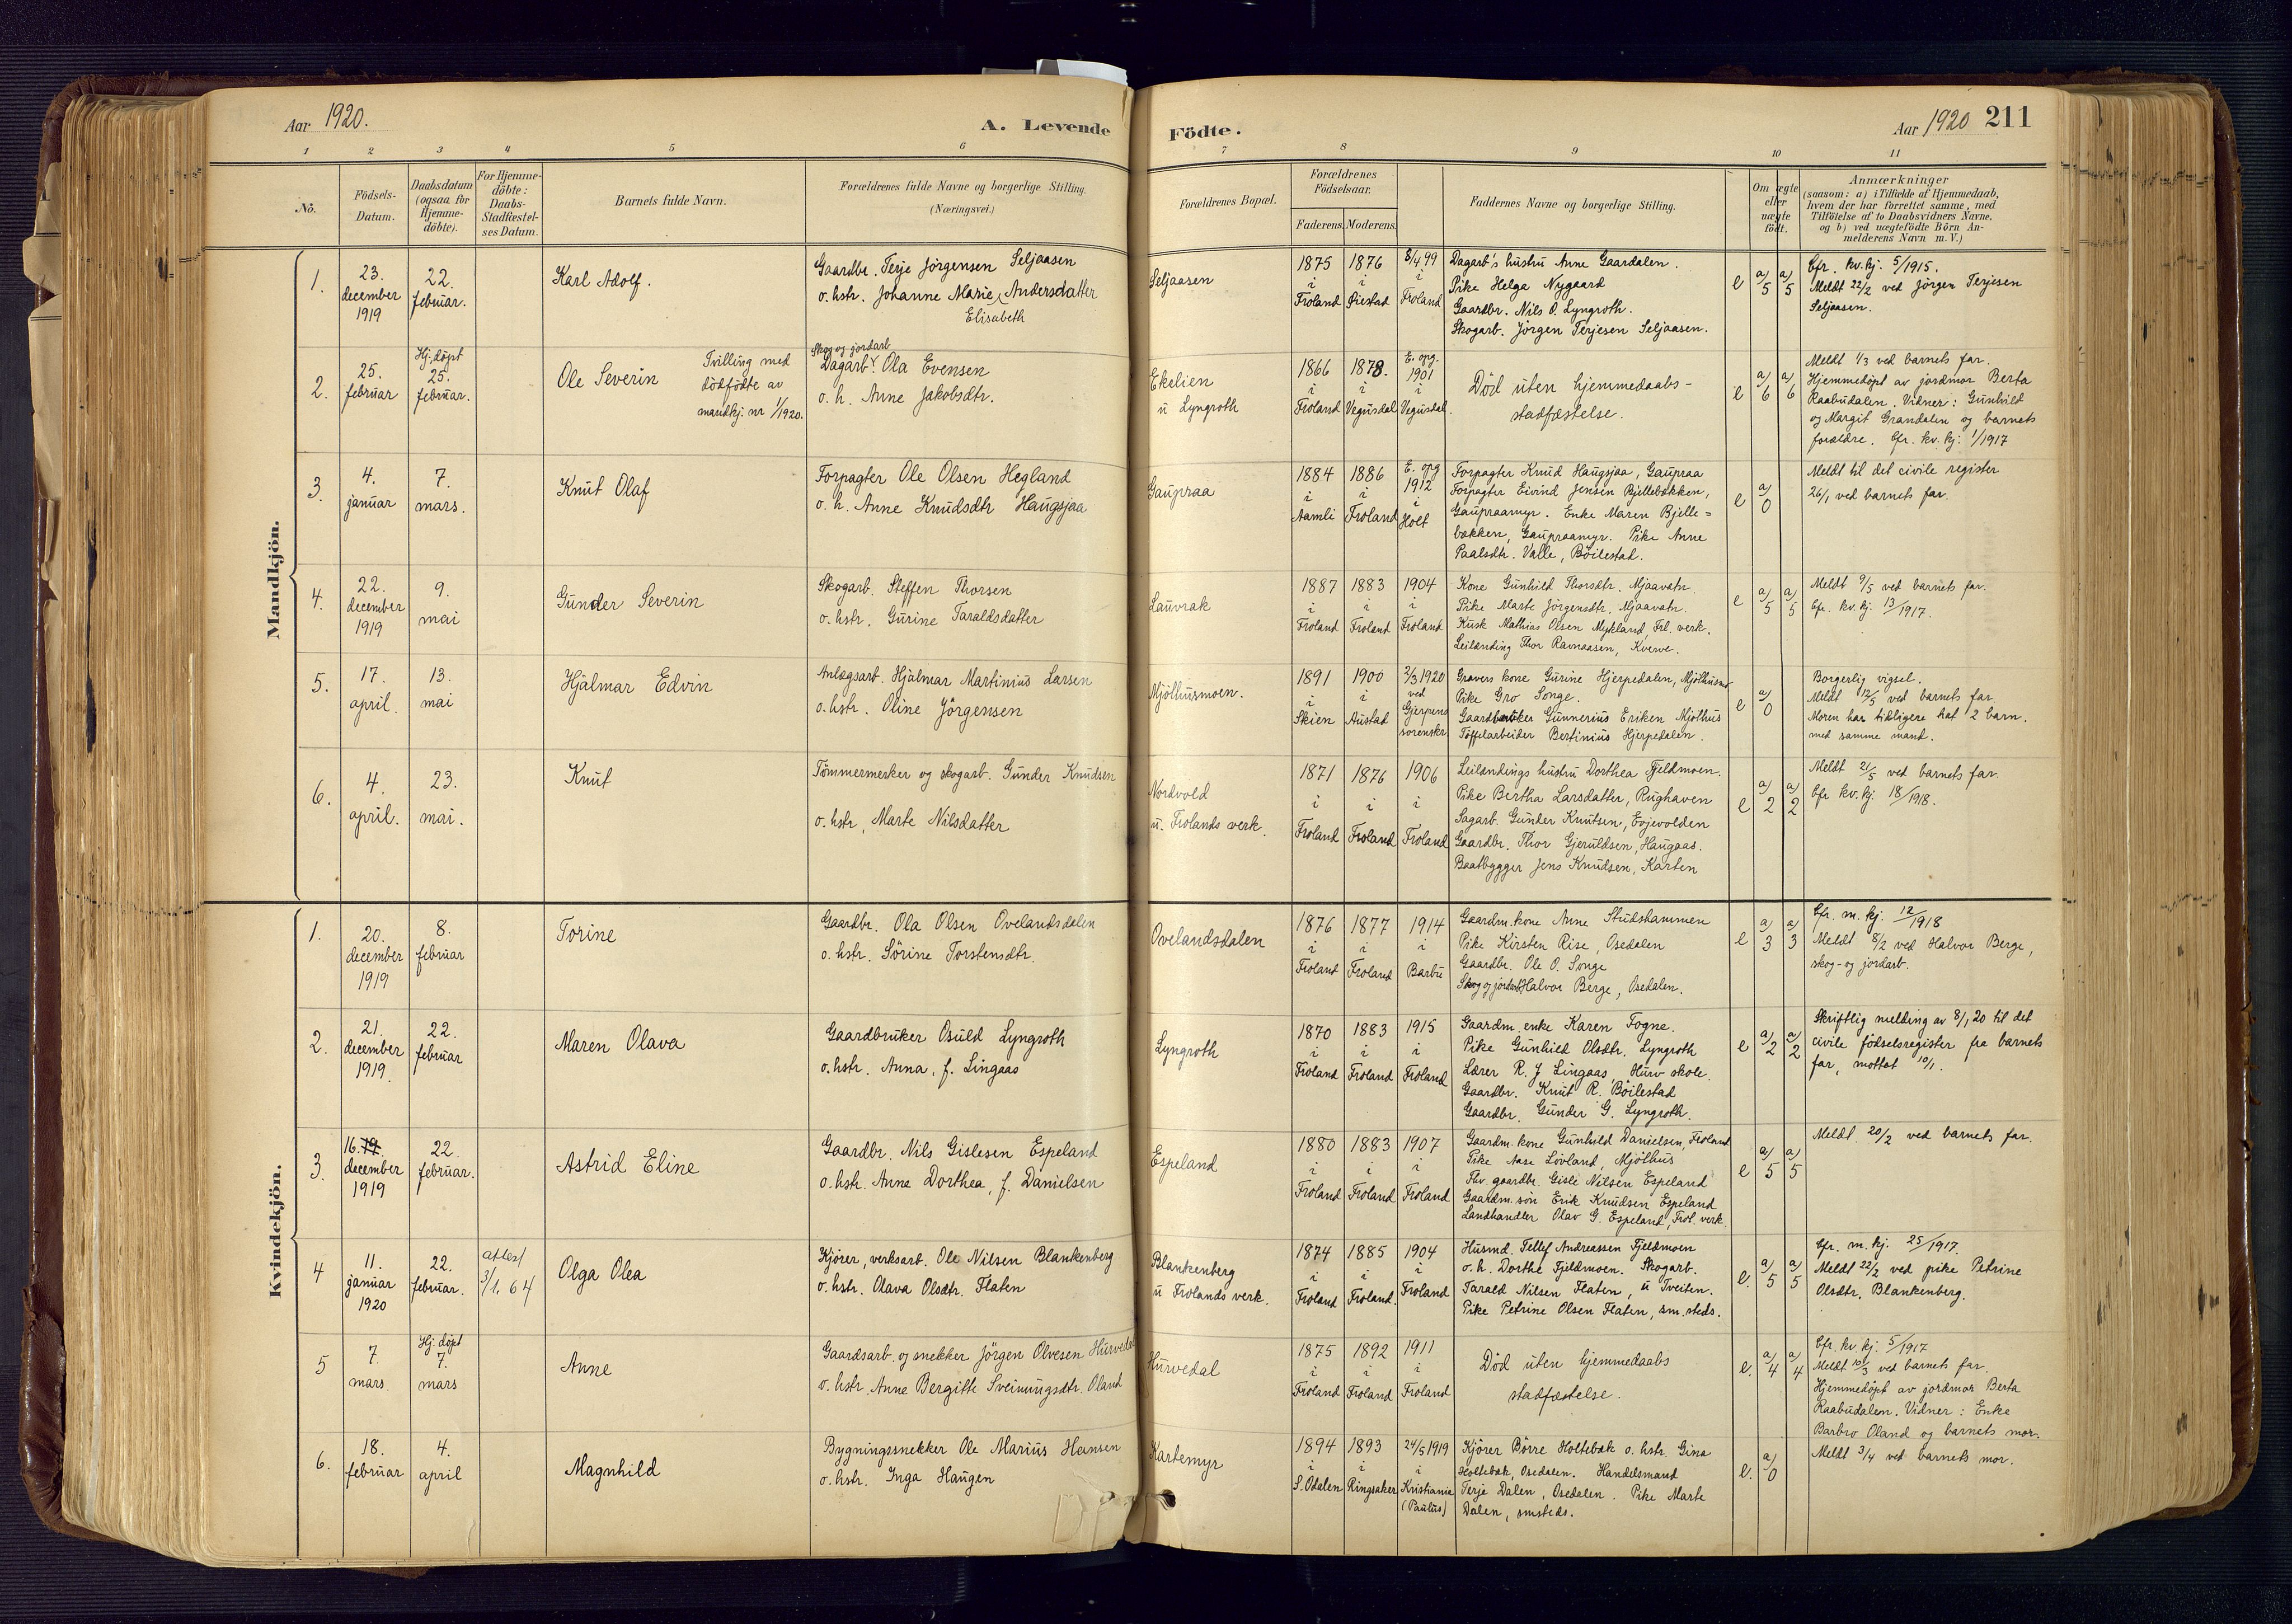 Aar 1920.
A. Levende
Födte.
Aar 1920
211
1 2 3 4 5 6 7 8 9 10 11
No.
Födsels-Datum.
Daabsdatum (ogsaa for Hjemme-döbte).
For Hjemme-döbte: Daabs-Stadfæstel-ses Datum.
Barnets fulde Navn.
Forældrenes fulde Navne og borgerlige Stilling.
(Næringsvei.)
Forældrenes Bopæl.
Forældrenes Födselsaar.
Faderens. Moderens.
Faddernes Navne og borgerlige Stilling.
Om ægte eller uægte födt.
Anmærkninger
(saasom: a) i Tilfælde af Hjemmedaab,
hvem der har forrettet samme, med
Tilföielse af to Daabsvidners Navne.
og b) ved uægtefödte Börn An-
melderens Navn m. V.)
Mandkjön.
1. 23. december 1919
22. februar.
Karl Adolf.
Gaardbr. Terje Jörgensen Seljaasen
o. hstr. Johanne Marie Andersdatter
Elisabeth
Seljaasen
1875 i Froland
1876 i Öiestad
8/4 99 i Froland
Dagarb's hustru Anne Gaardalen.
Pike Helga Nygaard
Gaardbr. Nils O. Lyngroth.
Skogarb. Jörgen Terjesen Seljaasen.
e a/5 a/5
Cfr. kv.kj. 5/1915.
Meldt 22/2 ved Jörgen Terjesen
Seljaasen.
2. 25. februar
Hj. döpt 25. februar.
Ole Severin
Tvilling med
dödfödte av
mandkj. nr 1/1920.
Skog og jordarb
Dagarb. Ola Evensen
o. h. Anne Jakobsdtr.
Ekelien
u Lyngroth
1866 i Froland
1878. i Vegusdal
E. opg. 1901 i Vegusdal.
Död uten hjemmedaabs-
stadfæstelse.
e a/6 a/6
Meldt 1/3 ved barnets far.
Hjemmedöpt av jordmor Berta
Raabudalen. Vidner: Gunhild
og Margit Grandalen og barnets
forældre. Cfr. kv. kj. 1/1917
3. 4. januar
7. mars.
Knut Olaf
Forpagter Ole Olsen Hegland
o. h. Anne Knudsdtr Haugsjaa
Gaupraa
1884 i Aamli
1886 i Froland
E. opg 1912 i Holt
Forpagter Knud Haugsjaa, Gaupraa
Forpagter Eivind Jensen Bjellebækken,
Gaupraamyr. Enke Maren Bjelle=
bækken, Gaupraamyr. Pike Anne
Paalsdtr. Valle, Böilestad.
e a/0
Meldt til det civile register
26/1 ved barnets far.
4. 22. december 1919
9. mai
Gunder Severin
Skogarb. Steffen Thorsen
o. hstr. Gurine Taraldsdatter
Lauvrak
1887 i Froland
1883 i Froland
1904 i Froland
Kone Gunhild Thorsdtr. Mjaavatn.
Pike Marte Jörgensdtr. Mjaavatn.
Kusk Mathias Olsen Mykland, Frl. verk.
Leilænding Thor Ravnaasen, Kverve.
e a/5 a/5
Meldt 9/5 ved barnets far.
Cfr. kv. kj. 13/1917.
5. 17. april.
13. mai
Hjalmar Edvin
Anlægsarb. Hjalmar Martinius Larsen
o. hstr. Oline Jörgensen
Mjölhusmoen.
1891 i Skien
1900 i Austad
2/3 1920 ved Gjerpens sorenskr
Gravers kone Gurine Hjerpedalen, Mjölhusmo
Pike Gro Songe.
Gaardbruker Gunnerius Eriken Mjölhus
Töffelarbeider Bertinius Hjerpedalen.
e a/0
Borgerlig vigsel.
Meldt 12/5 ved barnets far.
Moren har tidligere hat 2 barn.
med samme mand.
6. 4. april.
23. mai.
Knut
Tömmermerker og skogarb. Gunder Knudsen
o. hstr, Marte Nilsdatter
Nordvold
u. Frolands verk.
1871 i Froland
1876 i Froland
1906 i Froland
Leilændings hustru Dorthea Fjeldmoen.
Pike Bertha Larsdatter, Rughaven
Sagarb. Gunder Knutsen, Evjevolden
Gaardbr. Thor Gjeruldsen, Haugaas.
Baatbygger Jens Knudsen, Karten
e a/2 a/2
Meldt 21/5 ved barnets far.
Cfr kv. kj. 18/1918.
Kvindekjön.
1. 20. december 1919
8. februar
Torine
Gaardbr. Ola Olsen Ovelandsdalen
o. hstr. Sörine Torstensdtr.
Ovelandsdalen
1876 i Froland
1877 i Froland
1914 i Barbu
Gaardm. kone Anne Studshammen
Pike Kirsten Rise, Osedalen
Gaardbr. Ole O. Songe
Skog og jordarb. Halvor Berge, Osedalen.
e a/3 a/3
Cfr. m. kj. 12/1918
Meldt 8/2 ved Halvor Berge,
skog- og jordarb.
2. 21. december 1919.
22. februar
Maren Olava
Gaardbruker Osuld Lyngroth
o. hstr. Anna, f. Lingaas
Lyngroth
1870 i Froland
1883 i Froland
1915 i Froland
Gaardm. enke Karen Fogne.
Pike Gunhild Olsdtr. Lyngroth
Lærer R. J Lingaas, Hurv skole.
Gaardbr. Knut R. Böilestad
Gaardbr. Gunder G. Lyngroth.
e a/2 a/2
Skriftlig melding av 8/1 20 til det
civile födselsregister fra barnets
far, mottat 10/1.
3. 16. 19. december 1919
22. februar.
Astrid Eline
Gaardbr. Nils Gislesen Espeland
o. hstr. Anne Dorthea, f. Danielsen
Espeland
1880 i Froland
1883 i Froland
1907 i Froland
Gaardm. kone Gunhild Danielsen, Froland
Pike Aase Lövland, Mjölhus
Fhv. gaardbr. Gisle Nilsen Espeland
Gaardm. sön Erik Knudsen Espeland
Landhandler Olav G. Espeland, Frol. verk.
e a/5 a/5
Meldt 20/2 ved barnets far.
4 11. januar 1920
22. februar.
attest 3/1. 64
Olga Olea
Kjörer, verksarb. Ole Nilsen Blankenberg
o. hstr. Olava Olsdtr. Flaten
Blankenberg
u Frolands verk.
1874 i Froland
1885 i Froland.
1904 i Froland
Husmd. Tellef Andreassen Fjeldmoen
o. h. Dorthe Fjeldmoen. Skogarb.
Tarald Nilsen Flaten, u Tveiten.
Pike Petrine Olsen Flaten, sm. steds.
e. a/5 a/5
Cfr. m. kj. 25/1917.
Meldt 22/2 ved pike Petrine
Olsdtr. Blankenberg.
5 7. mars
Hj. döpt 7. mars
Anne
Gaardsarb. og snekker Jörgen Olvesen Hurvedal
o. hstr. Anne Bergitte Sveinungsdtr. Öland
Hurvedal
1875 i Froland
1892 i Froland
1911 i Froland
Död uten hjemmedaabs
stadfæstelse.
e. a/4 a/4
Cfr. kv. kj. 5/1917
Meldt 10/3 ved barnets far.
Hjemmedöpt av jordmor Berta
Raabudalen. Vidner: Enke
Barbro Öland og barnets mor.
6. 18. februar
4. april
Magnhild
Bygningssnekker Ole Marius Hansen
o. hstr. Inga Haugen
Kartemyr
1894 i S. Odalen
1893 i Ringsaker
24/5 1919 i Kristiania (Paulus)
Kjörer Börre Holtebæk o. hstr. Gina
Holtebæk, Osedalen. Handelsmand
Terje Dalen, Osedalen. Pike Marte
Dalen, smsteds.
e. a/0
Meldt 3/4 ved barnets mor.